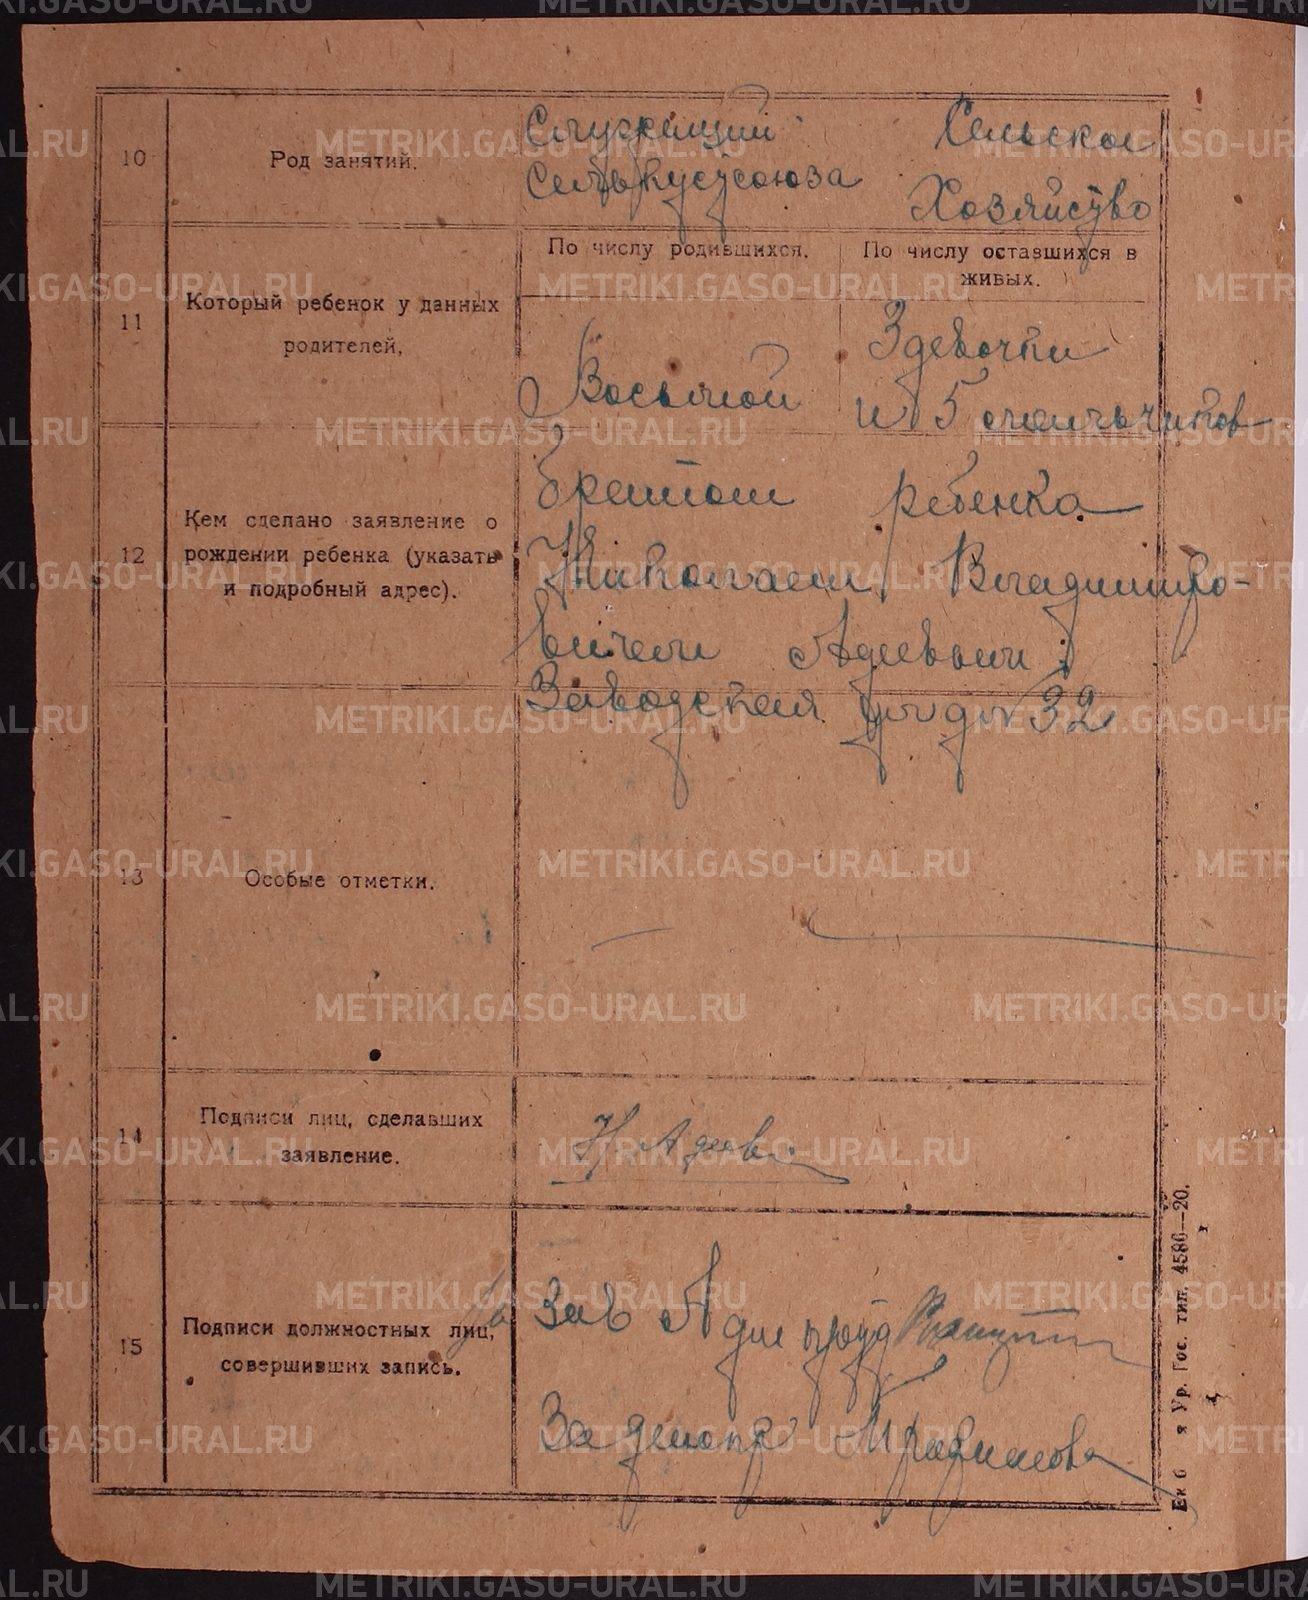 10
Род занятий.
Служащий
Сельское
Хозяйство
По числу родившихся.
По числу оставшихся в
живых.
11
Который ребенок у данных
родителей,
Восьмой
3 девочки
и 5 мальчиков
12
Кем сделано заявление о
рождении ребенка (указать
и подробный адрес).
Братом ребенка
Николаем Владимиро-
вичем Адиевым
Заводская ул д № 32
13
Особые отметки.
14
Подписи лиц, сделавших
заявление.
Н. Адиев
15
Подписи должностных лиц,
совершивших запись.
Зав
За делопр
Ур. Гос. тип. 4586—20.
METRIKI.GASO-URAL.RU